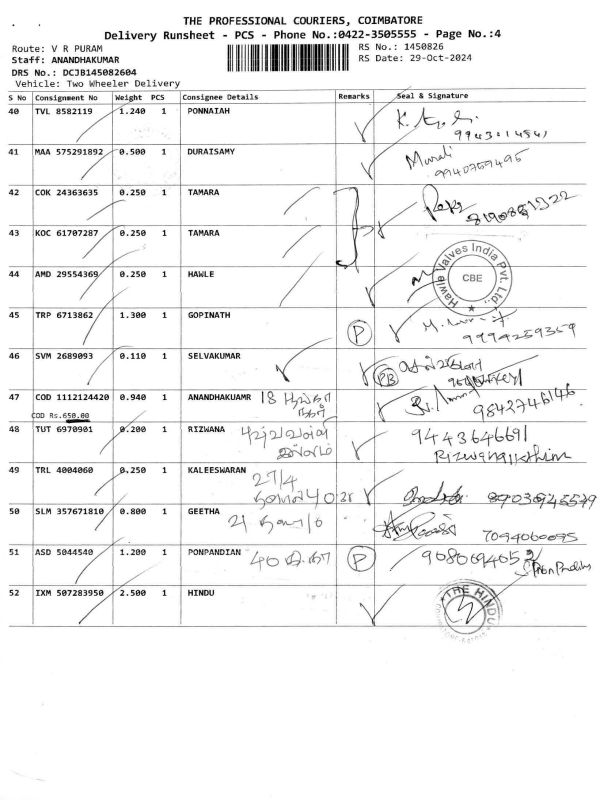 THE PROFESSIONAL COURIERS, COIMBATORE
Delivery Runsheet - PCS - Phone No.:0422-3505555 - Page No.:4
Route: V R PURAM
RS No.: 1450826
Staff: ANANDHAKUMAR
RS Date: 29-Oct-2024
DRS No.: DCJB145082604
Vehicle: Two Wheeler Delivery
S No Consignment No Weight PCS Consignee Details Remarks Seal & Signature
40 TVL 8582119 1.240 1 PONNAIAH
41 MAA 575291892 0.500 1 DURAISAMY Murali
9940759495
42 COK 24363635 0.250 1 TAMARA
43 KOC 61707287 0.250 1 TAMARA
44 AMD 29554369 0.250 1 HAWLE Hawle Valves India Pvt. Ltd., CBE
45 TRP 6713862 1.300 1 GOPINATH P
9994259359
46 SVM 2689093 0.110 1 SELVAKUMAR PB
47 COD 1112124420 0.940 1 ANANDHAKUAMR 18
9842746146
COD Rs.650.00
48 TUT 6970901 0.200 1 RIZWANA 9443646691
49 TRL 4004060 0.250 1 KALEESWARAN 27/4
50 SLM 357671810 0.800 1 GEETHA 21
7094060095
51 ASD 5044540 1.200 1 PONPANDIAN 40 P
52 IXM 507283950 2.500 1 HINDU THE HINDU